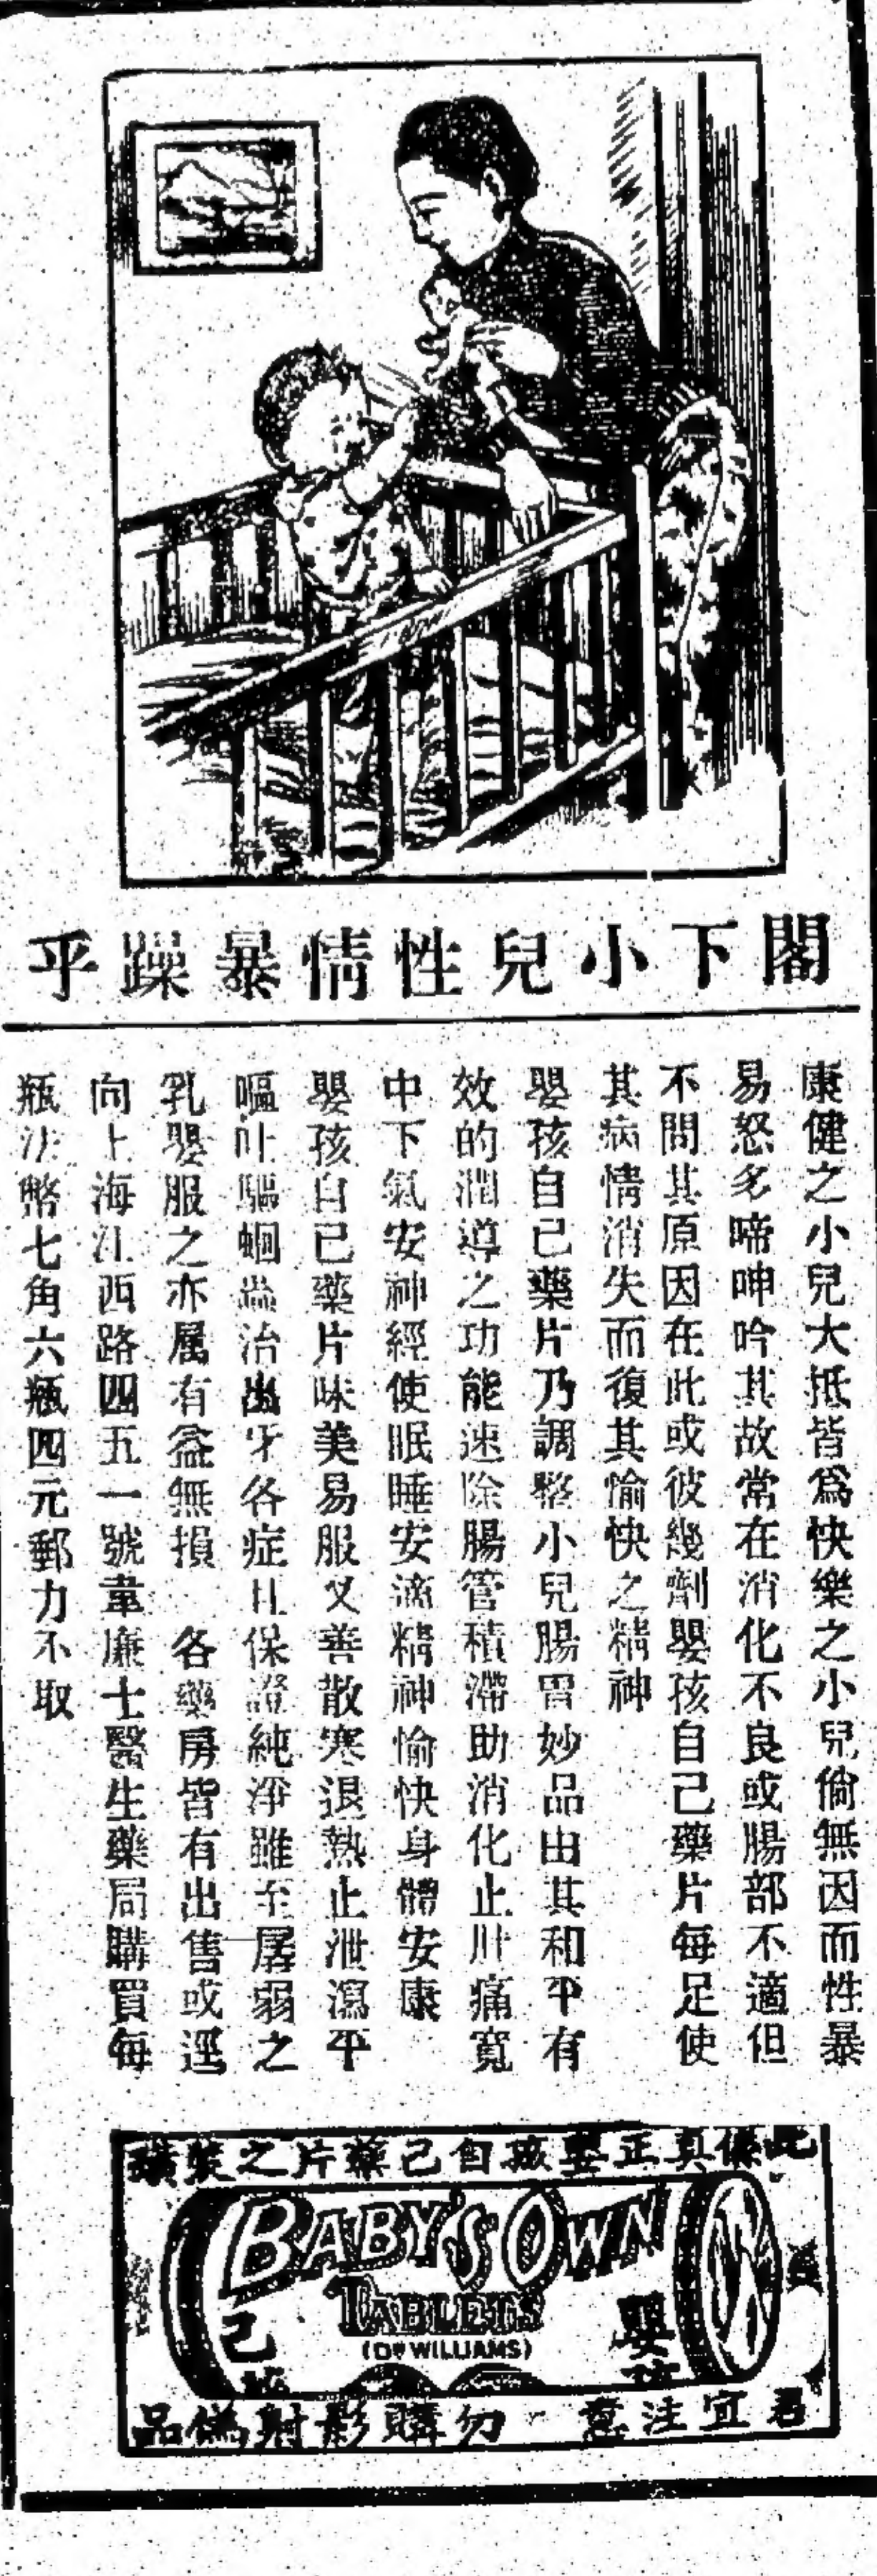 閣下小兒性情暴躁乎
康健之小兒大抵皆爲快樂之小兒倘無因而性暴
易怒多啼呻吟其故常在消化不良或腸部不適但
不問其原因在此或彼幾劑嬰孩自己藥片每足使
其病情消失而復其愉快之精神
嬰孩自己藥片乃調整小兒腸胃妙品由其和平有
效的潤導之功能速除腸管積滯助消化止肚痛寬
中下氣安神經使眠睡安適精神愉快身體安康
嬰孩自己藥片味美易服又善散寒退熱止泄瀉平
嘔吐驅蛔蟲治出牙各症且保證純淨雖至孱弱之
乳嬰服之亦属有益無損 各藥房皆有出售或逕
向上海江西路四五一號韋廉士醫生藥局購買每
瓶法幣七角六瓶四元郵力不取
此係真正嬰孩自己藥片之裝璜
BABY'S OWN
TABLETS
(DR WILLIAMS)
嬰孩
己
君宜注意 勿購影射偽品